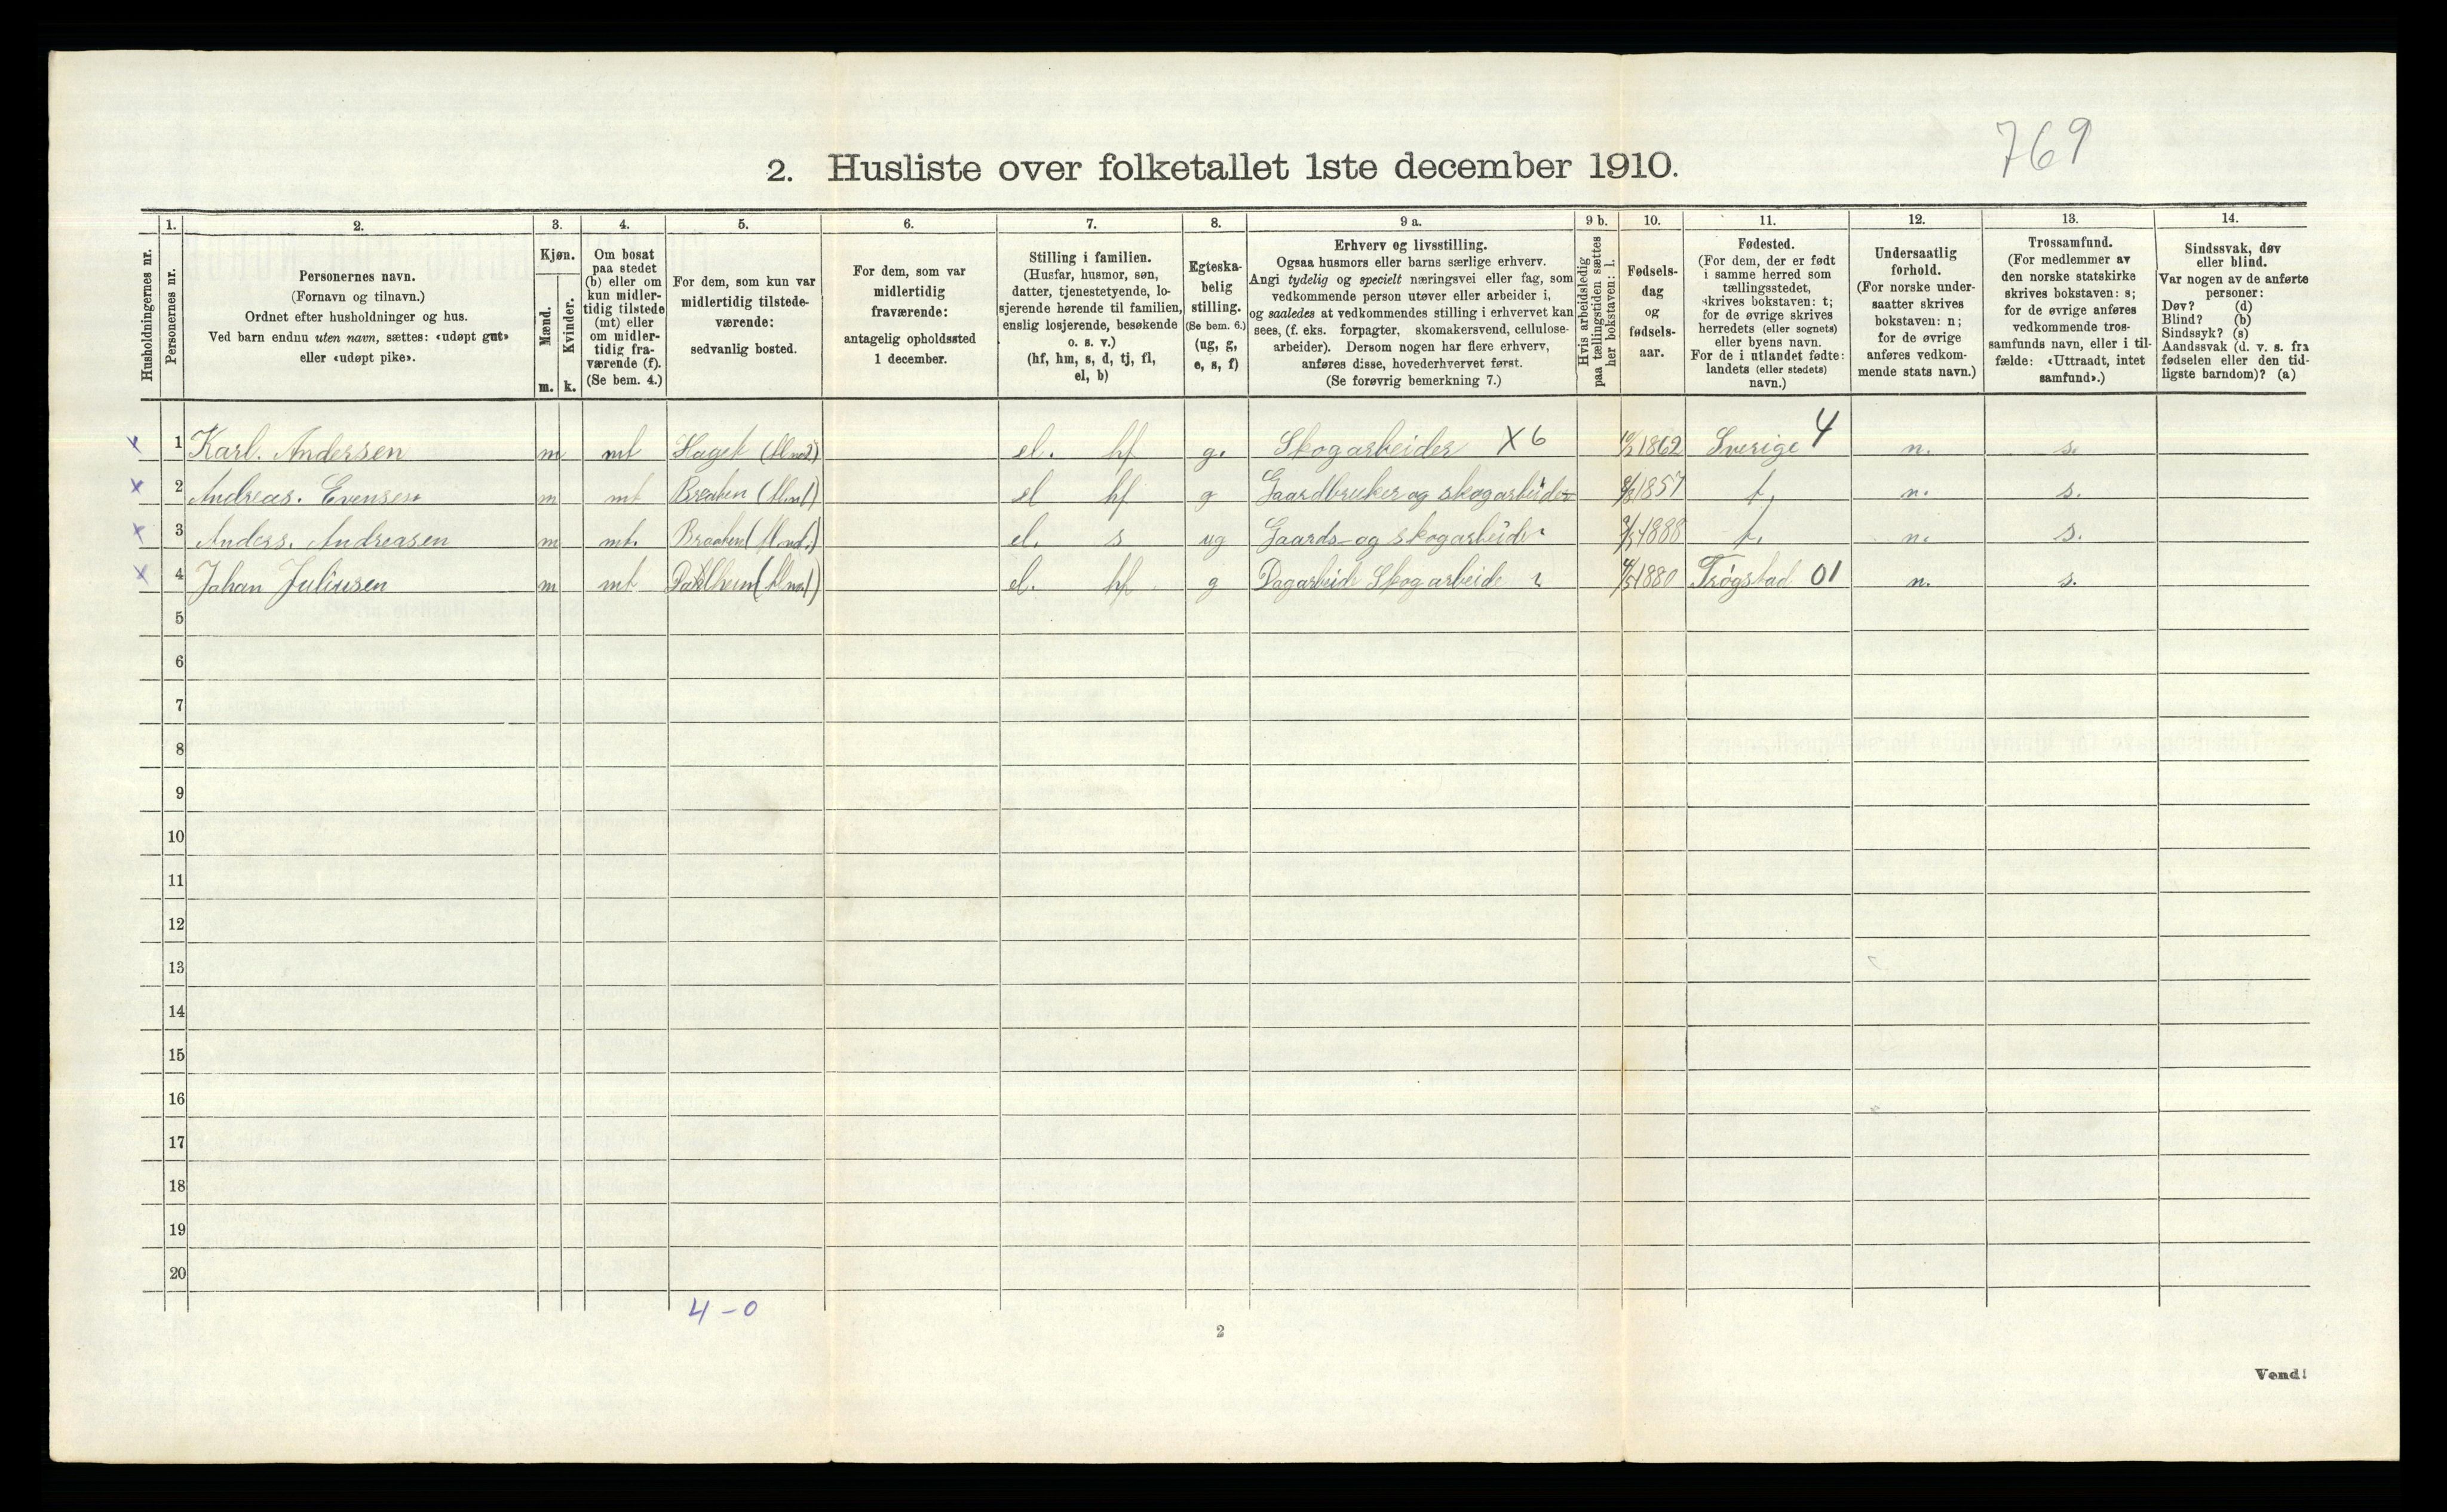 769
2. Husliste over folketallet 1ste december 1910.
Husholdningernes nr.
1.
Personernes nr.
2.
Personernes navn.
(Fornavn og tilnavn.)
Ordnet efter husholdninger og hus.
Ved barn endnu uten navn, sættes: «udøpt gut»
eller «udøpt pike».
3.
Kjøn.
Mænd.
Kvinder.
m. k.
4.
Om bosat
paa stedet
(b) eller om
kun midler-
tidig tilstede
(mt) eller
om midler-
tidig fra-
værende (f).
(Se bem. 4.)
5.
For dem, som kun var
midlertidig tilstede-
værende:
sedvanlig bosted.
6.
For dem, som var
midlertidig
fraværende:
antagelig opholdssted
1 december.
7.
Stilling i familien.
(Husfar, husmor, søn,
datter, tjenestetyende, lo-
sjerende hørende til familien,
enslig losjerende, besøkende
o. s. v.)
(hf, hm, s, d, tj, fl,
el, b)
8.
Egteska-
belig
stilling.
(Se bem. 6.)
(ug, g,
e, s, f)
9 a.
Erhverv og livsstilling.
Ogsaa husmors eller barns særlige erhverv.
Angi tydelig og specielt næringsvei eller fag, som
vedkommende person utøver eller arbeider i,
og saaledes at vedkommendes stilling i erhvervet kan
sees, (f. eks. forpagter, skomakersvend, cellulose-
arbeider). Dersom nogen har flere erhverv,
anføres disse, hovederhvervet først.
(Se forøvrig bemerkning 7.)
9 b.
Hvis arbeidsledig
paa tællingstiden sættes
her bokstaven: l.
10.
Fødsels-
dag
og
fødsels-
aar.
11.
Fødested.
(For dem, der er født
i samme herred som
tællingsstedet,
skrives bokstaven: t;
for de øvrige skrives
herredets (eller sognets)
eller byens navn.
For de i utlandet fødte:
landets (eller stedets)
navn.)
12.
Undersaatlig
forhold.
(For norske under-
saatter skrives
bokstaven: n;
for de øvrige
anføres vedkom-
mende stats navn.)
13.
Trossamfund.
(For medlemmer av
den norske statskirke
skrives bokstaven: s;
for de øvrige anføres
vedkommende tros-
samfunds navn, eller i til-
fælde: «Uttraadt, intet
samfund».)
14.
Sindssvak, døv
eller blind.
Var nogen av de anførte
personer:
Døv? (d)
Blind? (b)
Sindssyk? (s)
Aandssvak (d. v. s. fra
fødselen eller den tid-
ligste barndom)? (a)
x 1 Karl. Andersen m mt Haget el. hf g. Skogarbeider X6 1862 Sverige 4 n. s.
x 2 Andreas. Evensen m mt Braaten el hf g Gaardbruker og skogarbeider 1857 t, n. s.
x 3 Anders. Andreasen m mt. Braaten el. s ug Gaards- og skogarbeider 1888 t. n. s.
x 4 Johan Juliusen m mt el. hf g Dagarbeide Skogarbeide 1880 Trøgstad 01 n. s.
5
6
7
8
9
10
11
12
13
14
15
16
17
18
19
20
4-0
2
Vend!